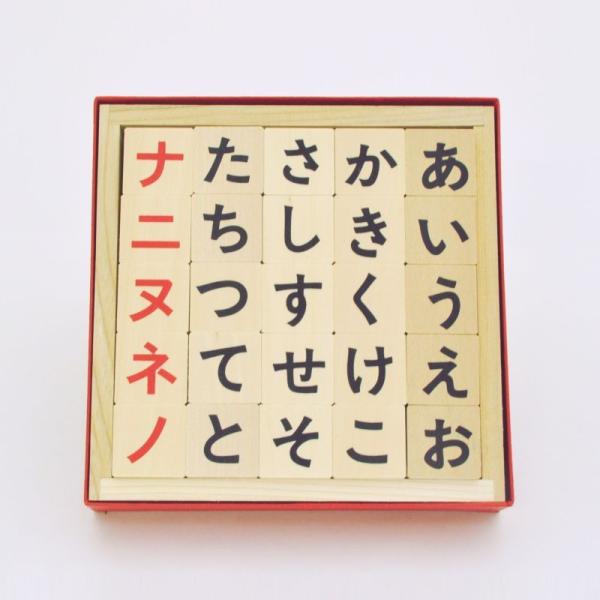 あいうえお
かきくけこ
さしすせそ
たちつてと
ナニヌネノ